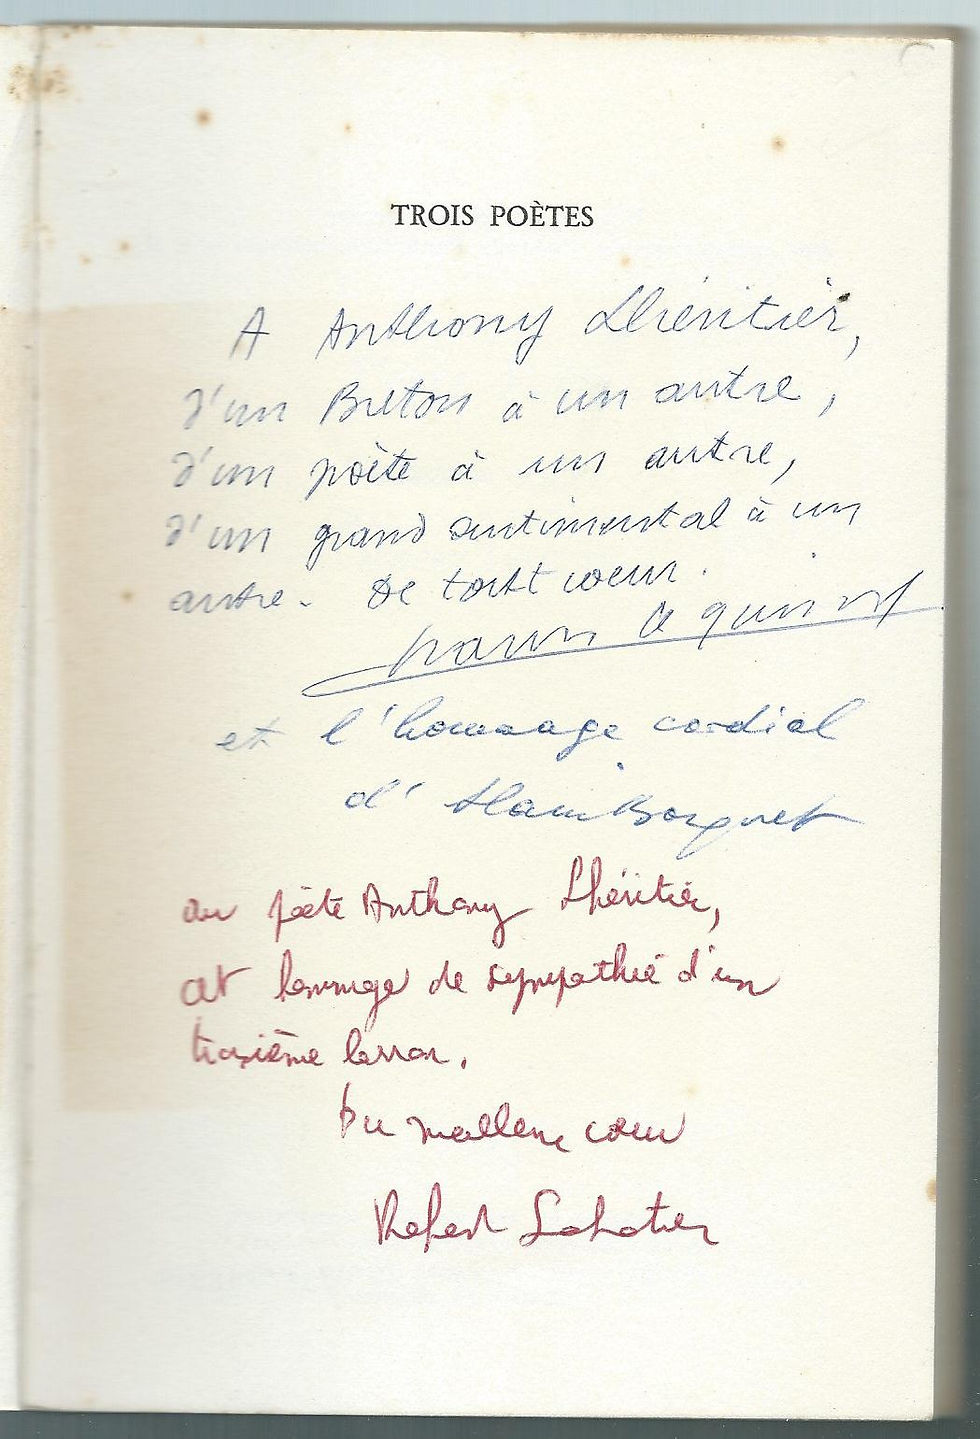 TROIS POÈTES
A Anthony Lhéritier,
d'un Breton à un autre,
d'un poète à un autre,
d'un grand sentimental à un
autre. De tout coeur.
le quintrec
et l'hommage cordial
d'Alain Bosquet
au poète Anthony Lhéritier,
cet hommage de sympathie d'un
troisième larron.
Du meilleur coeur
Robert Sabatier